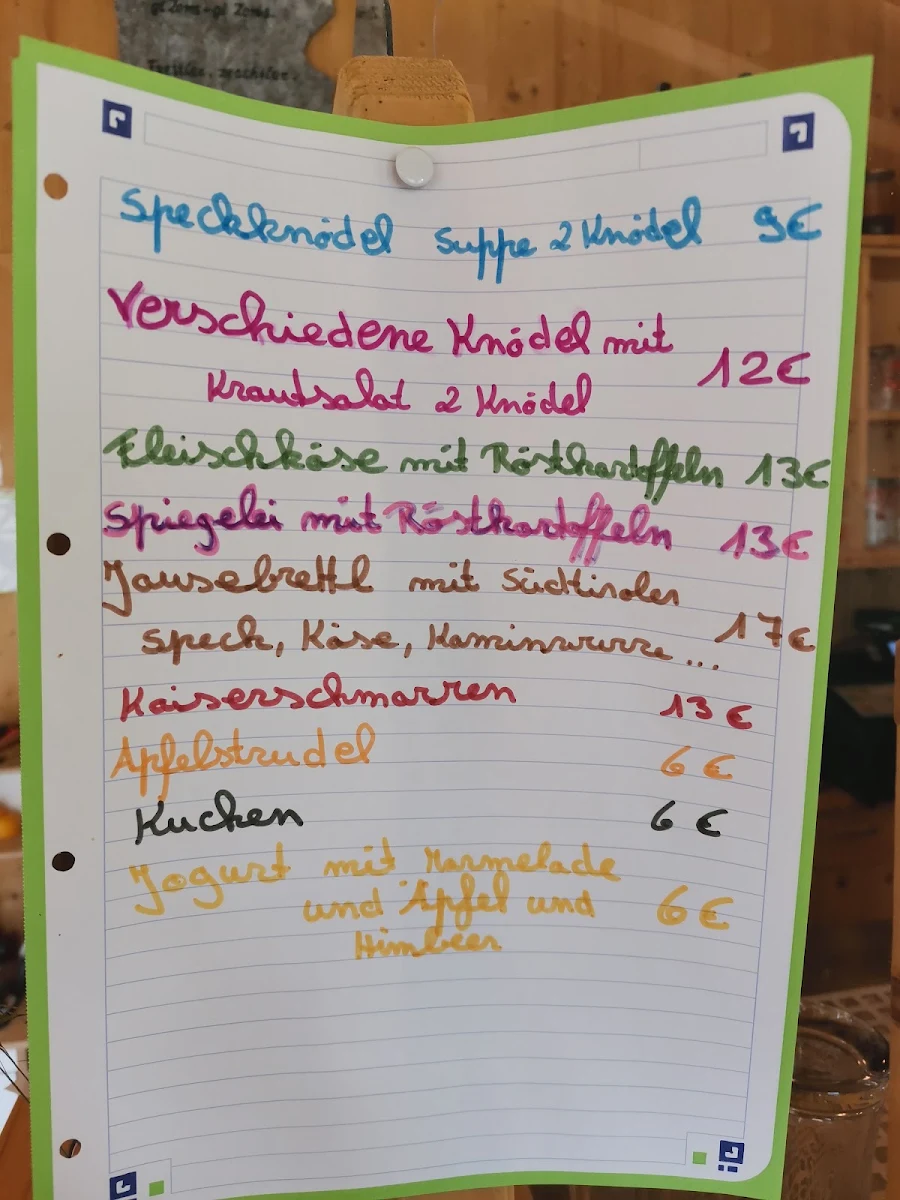 Speckknödel Suppe 2 Knödel 9€
Verschiedene Knödel mit
Krautsalat 2 Knödel 12€
Fleischkäse mit Röstkartoffeln 13€
Spiegelei mit Röstkartoffeln 13€
Jausebrettl mit Südtiroler
Speck, Käse, Kaminwurze ... 17€
Kaiserschmarren 13€
Apfelstrudel 6€
Kuchen 6€
Jogurt mit Marmelade
und Äpfel und 6€
Himbeer